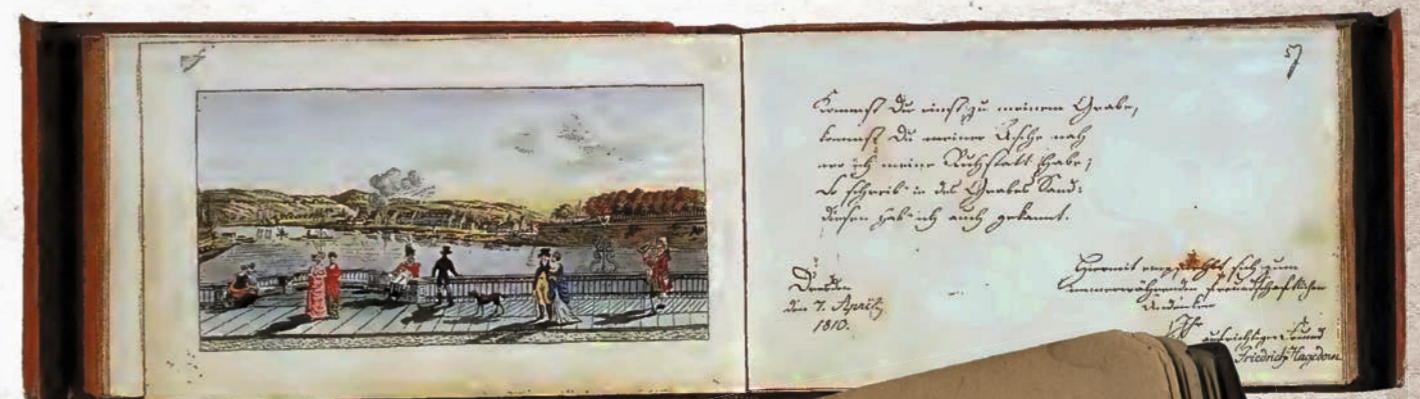 57
Kommst Du einst zu meinem Grabe,
kommst Du meiner Asche nah
wo ich meine Ruhstatt habe;
So schreib' in des Grabes Sand:
diesen hab' ich auch gekannt.
Dresden
den 7. April
1810.
Hiermit empfiehlt sich zum
immerwährenden freundschaftlichen
Andenken
Ihr
aufrichtiger Freund
Friedrich Hagedorn